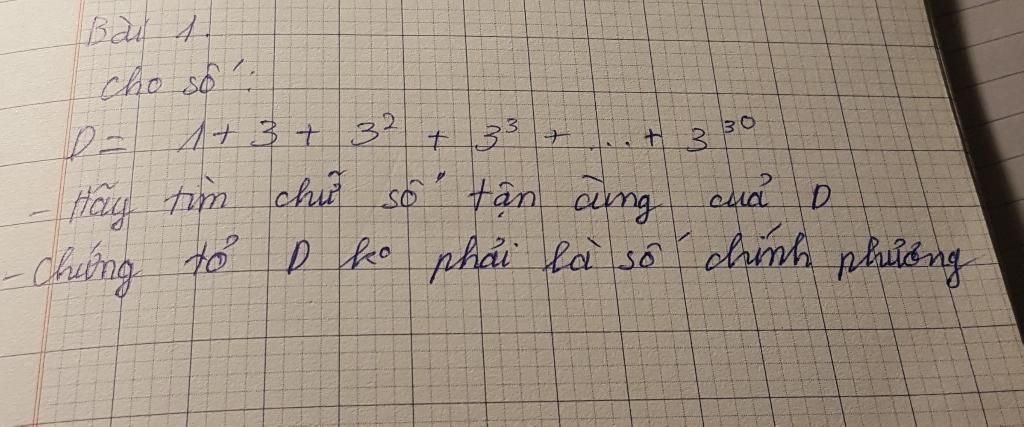 Bài 1.
Cho số:
D = 1 + 3 + 3² + 3³ + ... + 3³⁰
- Hãy tìm chữ số tận cùng của D
- Chứng tỏ D ko phải là số chính phương